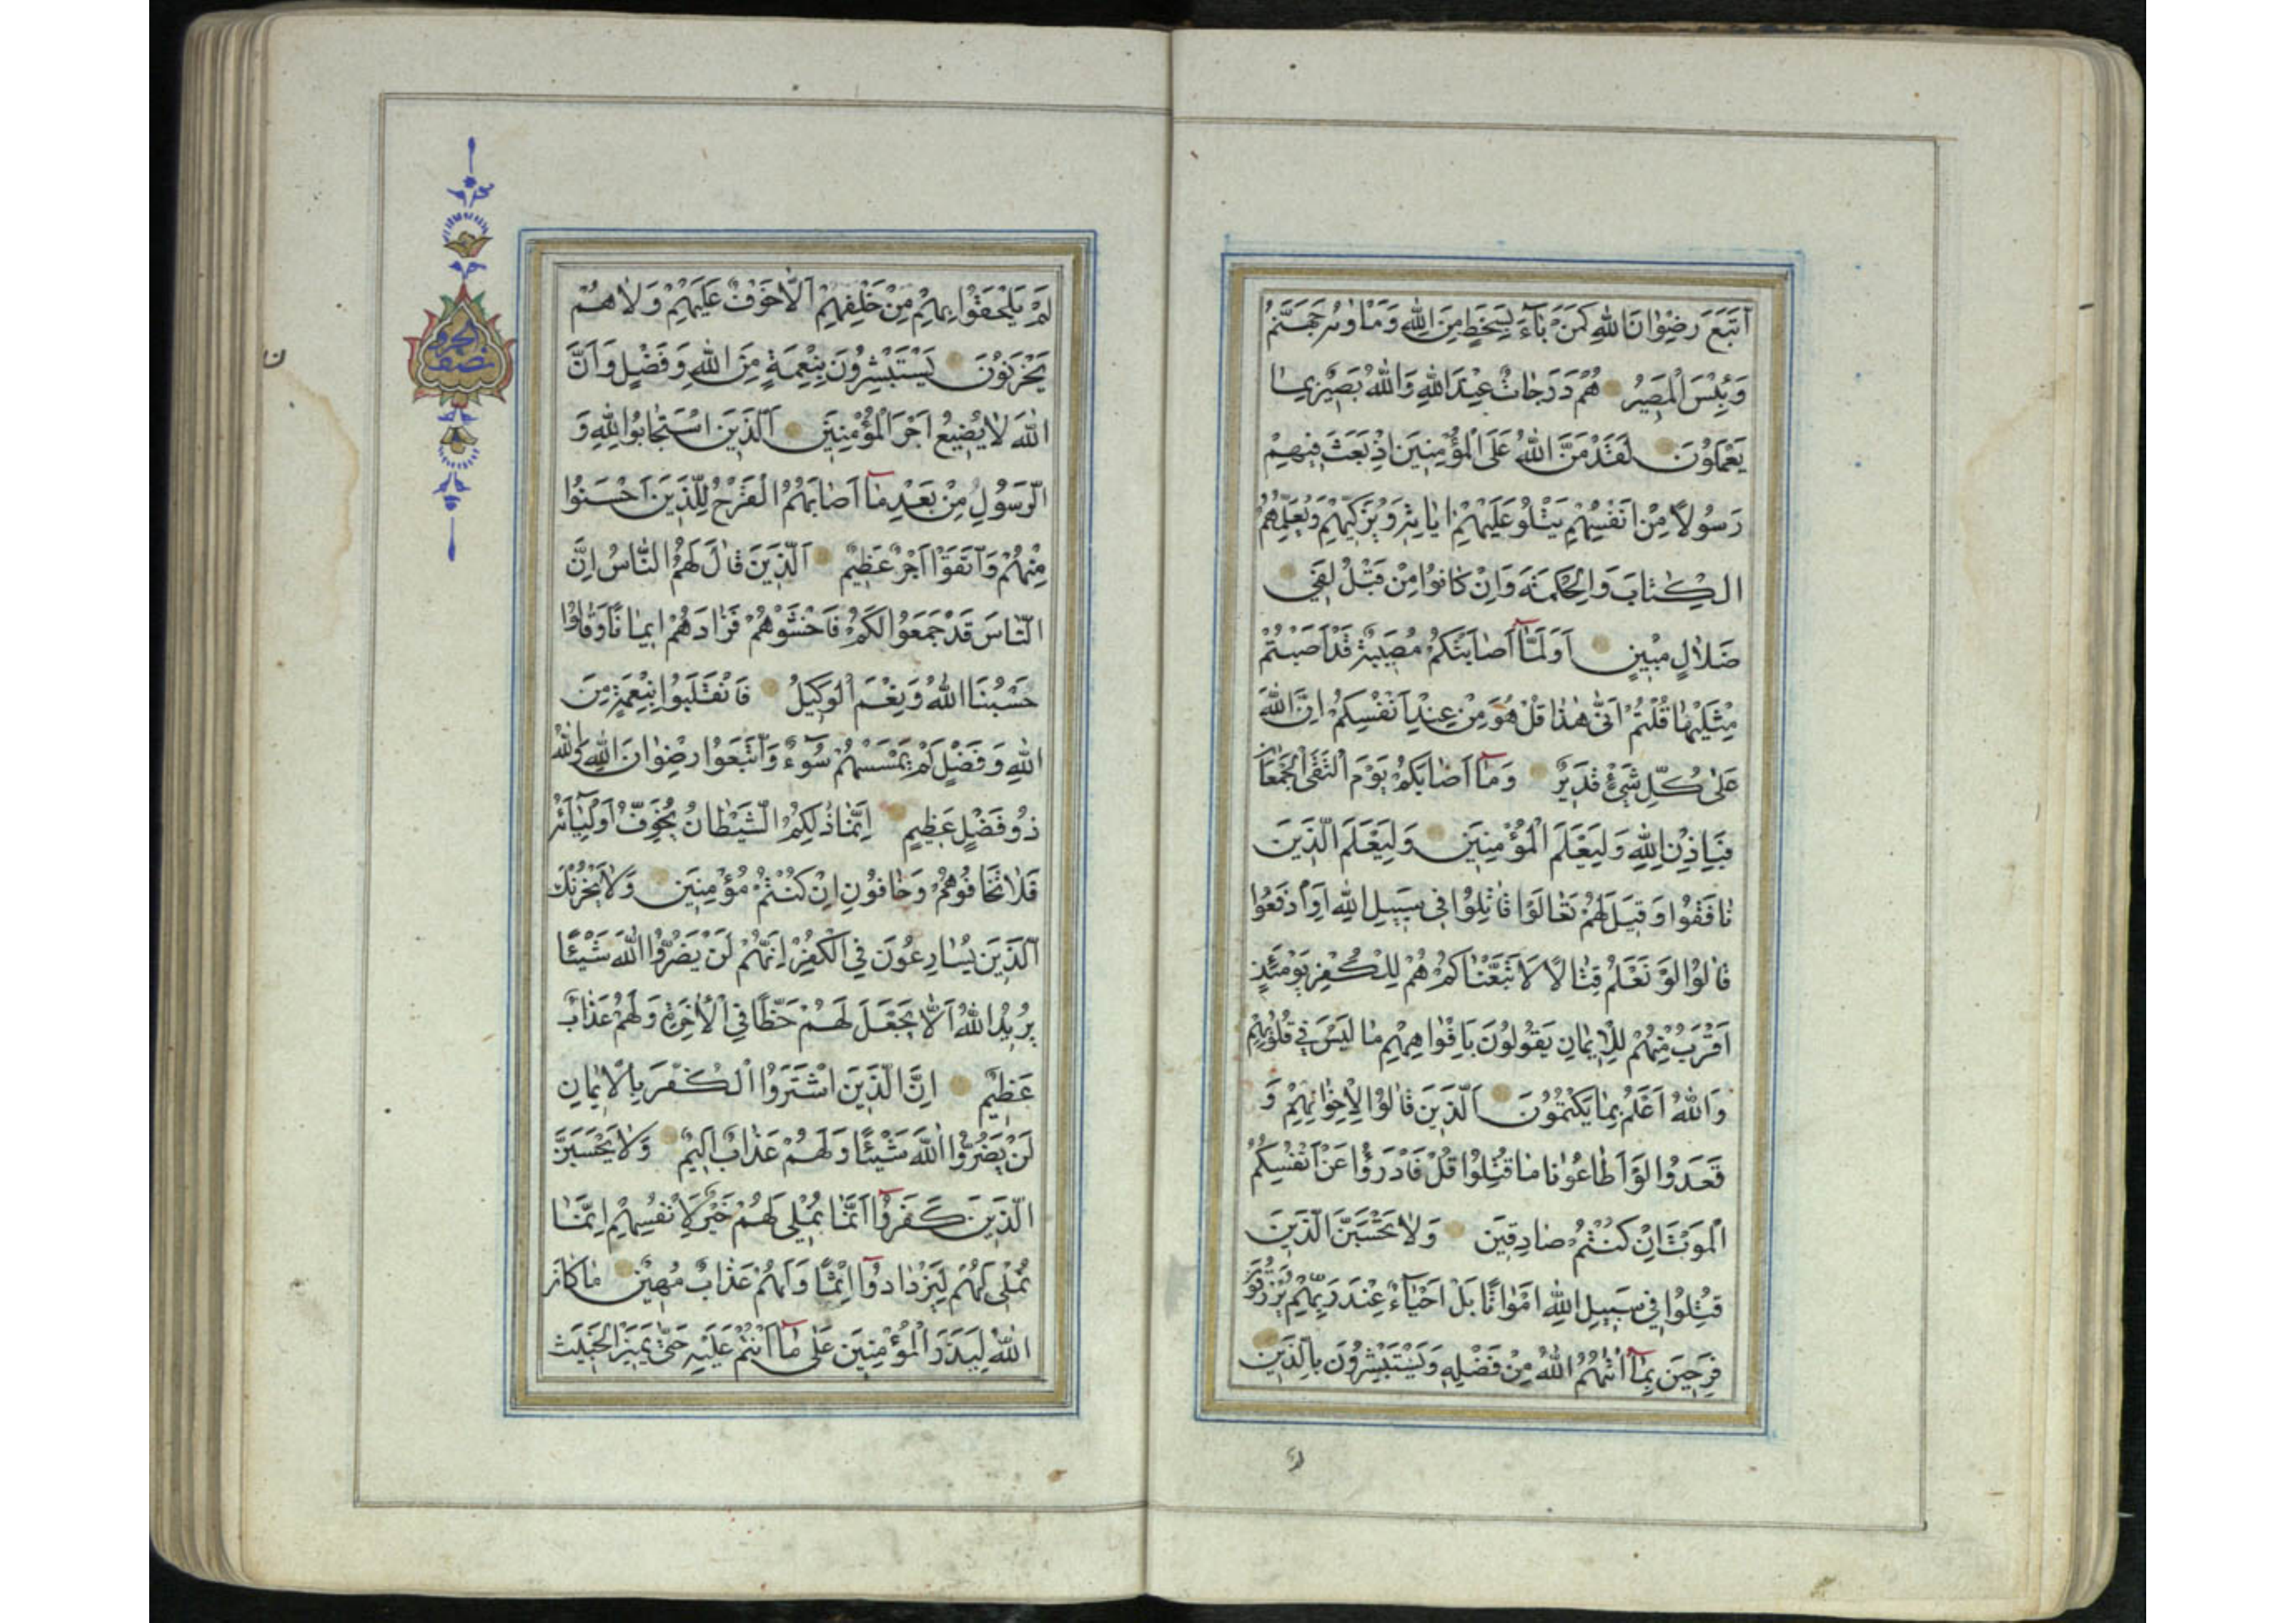 اتَّبَعَ رِضْوٰانَ اللّٰهِ كَمَنْ بٰآءَ بِسَخَطٍ مِنَ اللّٰهِ وَمَأْوٰیهُ جَهَنَّمُ
وَبِئْسَ الْمَصِيرُ هُمْ دَرَجٰاتٌ عِنْدَ اللّٰهِ وَاللّٰهُ بَصِيرٌ بِمٰا
يَعْمَلُونَ لَقَدْ مَنَّ اللّٰهُ عَلَى الْمُؤْمِنِينَ اِذْ بَعَثَ فِيهِمْ
رَسُولاً مِنْ اَنْفُسِهِمْ يَتْلُو عَلَيْهِمْ اٰيٰاتِهِ وَيُزَكِّيهِمْ وَيُعَلِّمُهُمُ
الْكِتٰابَ وَالْحِكْمَةَ وَاِنْ كٰانُوا مِنْ قَبْلُ لَفِي
ضَلاٰلٍ مُبِينٍ اَوَلَمّٰآ اَصٰابَتْكُمْ مُصِيبَةٌ قَدْ اَصَبْتُمْ
مِثْلَيْهٰا قُلْتُمْ اَنّٰى هٰذٰا قُلْ هُوَ مِنْ عِنْدِ اَنْفُسِكُمْ اِنَّ اللّٰهَ
عَلٰى كُلِّ شَيْءٍ قَدِيرٌ وَمٰآ اَصٰابَكُمْ يَوْمَ الْتَقَى الْجَمْعٰانِ
فَبِاِذْنِ اللّٰهِ وَلِيَعْلَمَ الْمُؤْمِنِينَ وَلِيَعْلَمَ الَّذِينَ
نٰافَقُوا وَقِيلَ لَهُمْ تَعٰالَوْا قٰاتِلُوا فِي سَبِيلِ اللّٰهِ اَوِ ادْفَعُوا
قٰالُوا لَوْ نَعْلَمُ قِتٰالاً لاَتَّبَعْنٰاكُمْ هُمْ لِلْكُفْرِ يَوْمَئِذٍ
اَقْرَبُ مِنْهُمْ لِلْاِيمٰانِ يَقُولُونَ بِاَفْوٰاهِهِمْ مٰا لَيْسَ فِي قُلُوبِهِمْ
وَاللّٰهُ اَعْلَمُ بِمٰا يَكْتُمُونَ اَلَّذِينَ قٰالُوا لِاِخْوٰانِهِمْ وَ
قَعَدُوا لَوْ اَطٰاعُونٰا مٰا قُتِلُوا قُلْ فَادْرَؤُا عَنْ اَنْفُسِكُمُ
الْمَوْتَ اِنْ كُنْتُمْ صٰادِقِينَ وَلاٰ تَحْسَبَنَّ الَّذِينَ
قُتِلُوا فِي سَبِيلِ اللّٰهِ اَمْوٰاتًا بَلْ اَحْيٰآءٌ عِنْدَ رَبِّهِمْ يُرْزَقُونَ
فَرِحِينَ بِمٰآ اٰتٰيهُمُ اللّٰهُ مِنْ فَضْلِهِ وَيَسْتَبْشِرُونَ بِالَّذِينَ
لم
لَمْ يَلْحَقُوا بِهِمْ مِنْ خَلْفِهِمْ اَلاّٰ خَوْفٌ عَلَيْهِمْ وَلاٰ هُمْ
يَحْزَنُونَ يَسْتَبْشِرُونَ بِنِعْمَةٍ مِنَ اللّٰهِ وَفَضْلٍ وَاَنَّ
اللّٰهَ لاٰ يُضِيعُ اَجْرَ الْمُؤْمِنِينَ اَلَّذِينَ اسْتَجٰابُوا لِلّٰهِ وَ
الرَّسُولِ مِنْ بَعْدِ مٰآ اَصٰابَهُمُ الْقَرْحُ لِلَّذِينَ اَحْسَنُوا
مِنْهُمْ وَاتَّقَوْا اَجْرٌ عَظِيمٌ اَلَّذِينَ قٰالَ لَهُمُ النّٰاسُ اِنَّ
النّٰاسَ قَدْ جَمَعُوا لَكُمْ فَاخْشَوْهُمْ فَزٰادَهُمْ اِيمٰانًا وَقٰالُوا
حَسْبُنَا اللّٰهُ وَنِعْمَ الْوَكِيلُ فَانْقَلَبُوا بِنِعْمَةٍ مِنَ
اللّٰهِ وَفَضْلٍ لَمْ يَمْسَسْهُمْ سُوٓءٌ وَاتَّبَعُوا رِضْوٰانَ اللّٰهِ وَاللّٰهُ
ذُو فَضْلٍ عَظِيمٍ اِنَّمٰا ذٰلِكُمُ الشَّيْطٰانُ يُخَوِّفُ اَوْلِيٰآئَهُ
فَلاٰ تَخٰافُوهُمْ وَخٰافُونِ اِنْ كُنْتُمْ مُؤْمِنِينَ وَلاٰ يَحْزُنْكَ
الَّذِينَ يُسٰارِعُونَ فِي الْكُفْرِ اِنَّهُمْ لَنْ يَضُرُّوا اللّٰهَ شَيْئًا
يُرِيدُ اللّٰهُ اَلاّٰ يَجْعَلَ لَهُمْ حَظًّا فِي الْاٰخِرَةِ وَلَهُمْ عَذٰابٌ
عَظِيمٌ اِنَّ الَّذِينَ اشْتَرَوُا الْكُفْرَ بِالْاِيمٰانِ
لَنْ يَضُرُّوا اللّٰهَ شَيْئًا وَلَهُمْ عَذٰابٌ اَلِيمٌ وَلاٰ يَحْسَبَنَّ
الَّذِينَ كَفَرُوٓا اَنَّمٰا نُمْلِي لَهُمْ خَيْرٌ لِاَنْفُسِهِمْ اِنَّمٰا
نُمْلِي لَهُمْ لِيَزْدٰادُوٓا اِثْمًا وَلَهُمْ عَذٰابٌ مُهِينٌ مٰا كٰانَ
اللّٰهُ لِيَذَرَ الْمُؤْمِنِينَ عَلٰى مٰآ اَنْتُمْ عَلَيْهِ حَتّٰى يَمِيزَ الْخَبِيثَ
نصف الحزب
ن